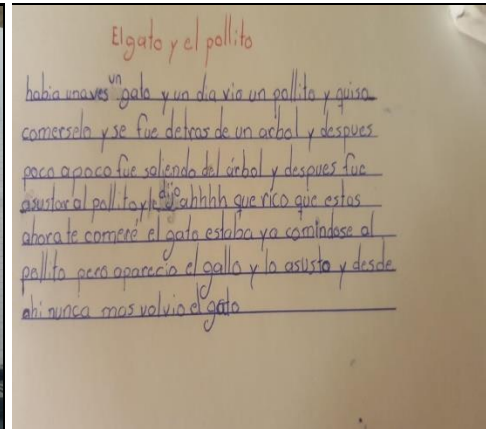 El gato y el pollito
habia unaves un gato y un dia vio un pollito y quiso
comerselo y se fue detras de un arbol y despues
poco a poco fue saliendo del árbol y despues fue
asustar al pollito y le dijo ahhhh que rico que estas
ahora te comeré el gato estaba ya comindose al
pollito pero aparecio el gallo y lo asusto y desde
ahi nunca mas volvio el gato